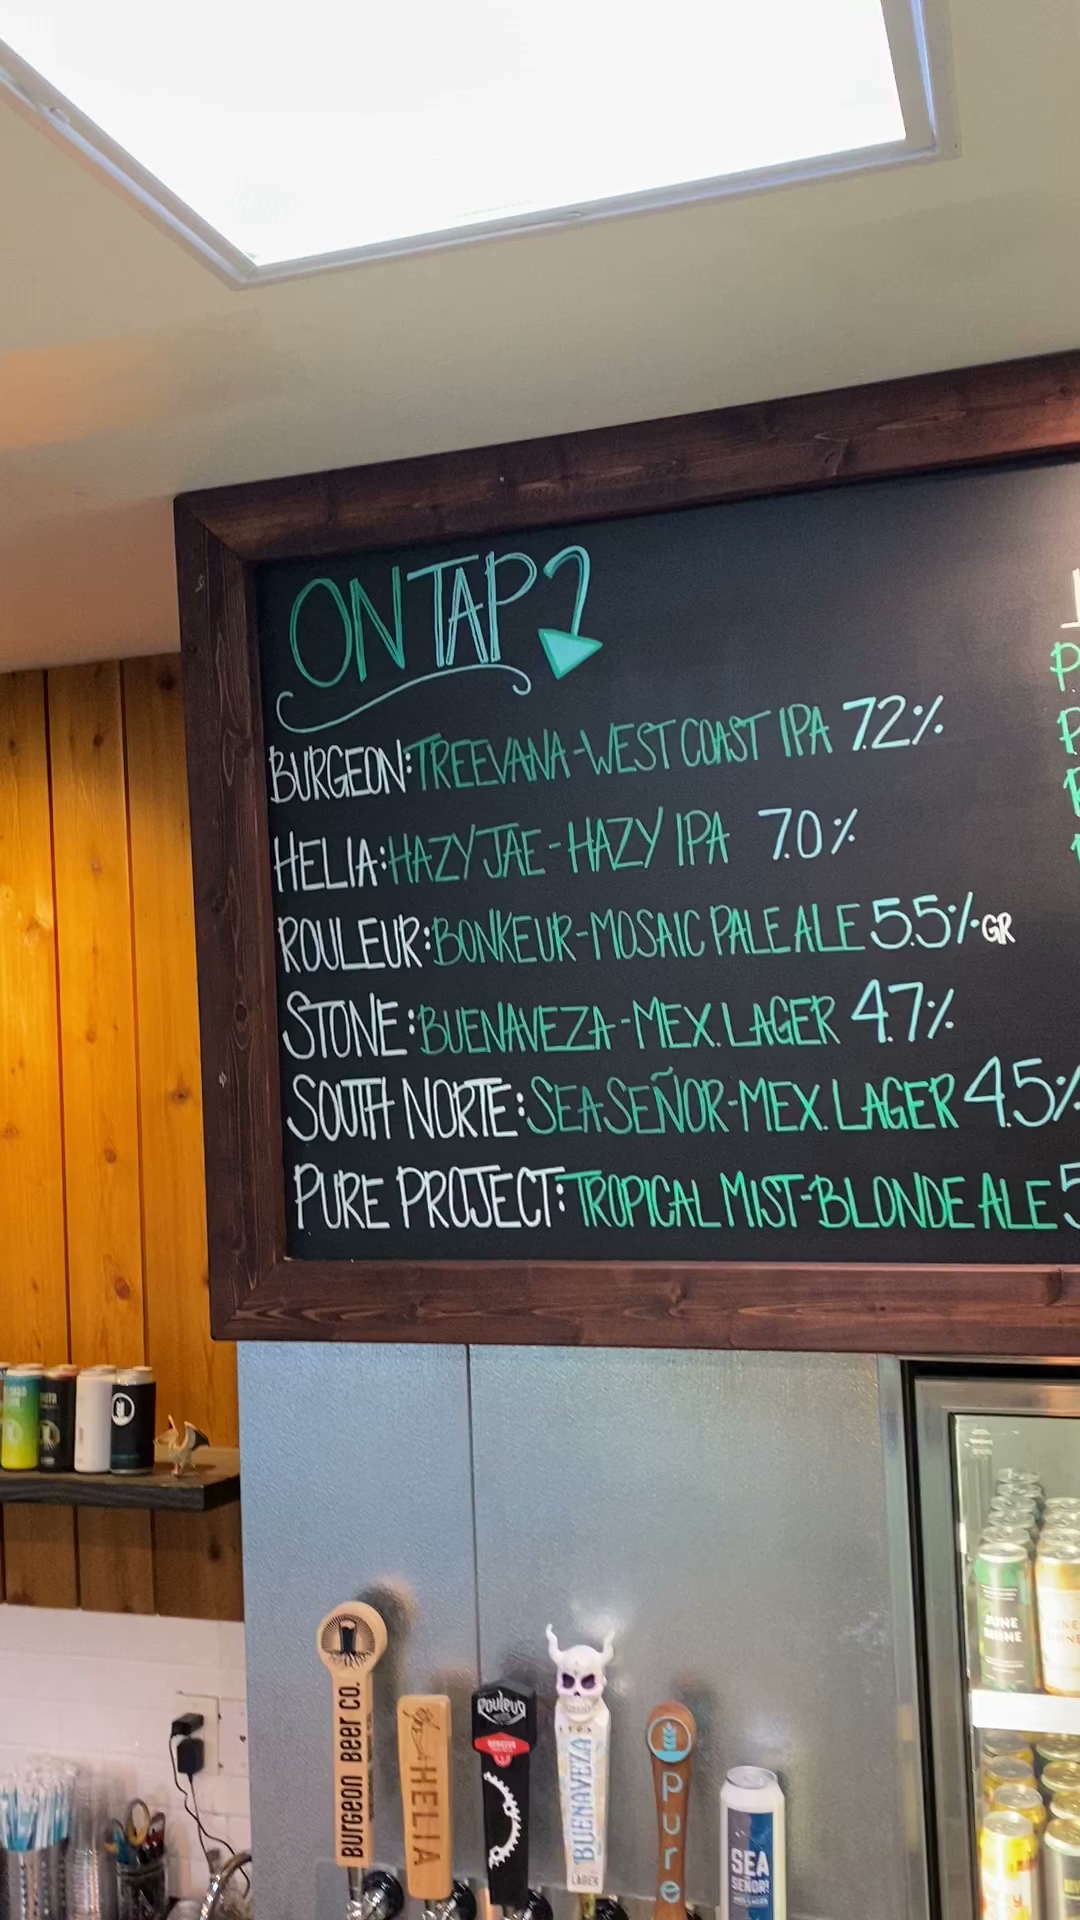 ON TAP
BURGEON: TREEVANA - WEST COAST IPA 7.2%
HELIA: HAZY JAE - HAZY IPA 7.0%
ROULEUR: BONKEUR - MOSAIC PALE ALE 5.5% GR
STONE: BUENAVEZA - MEX. LAGER 4.7%
SOUTH NORTE: SEA SEÑOR - MEX. LAGER 4.5%
PURE PROJECT: TROPICAL MIST - BLONDE ALE 5
BURGEON BEER CO.
HELIA
Rouleur
BUENAVEZA
LAGER
Pure
SEA
SEÑOR!
JUNE
SHINE